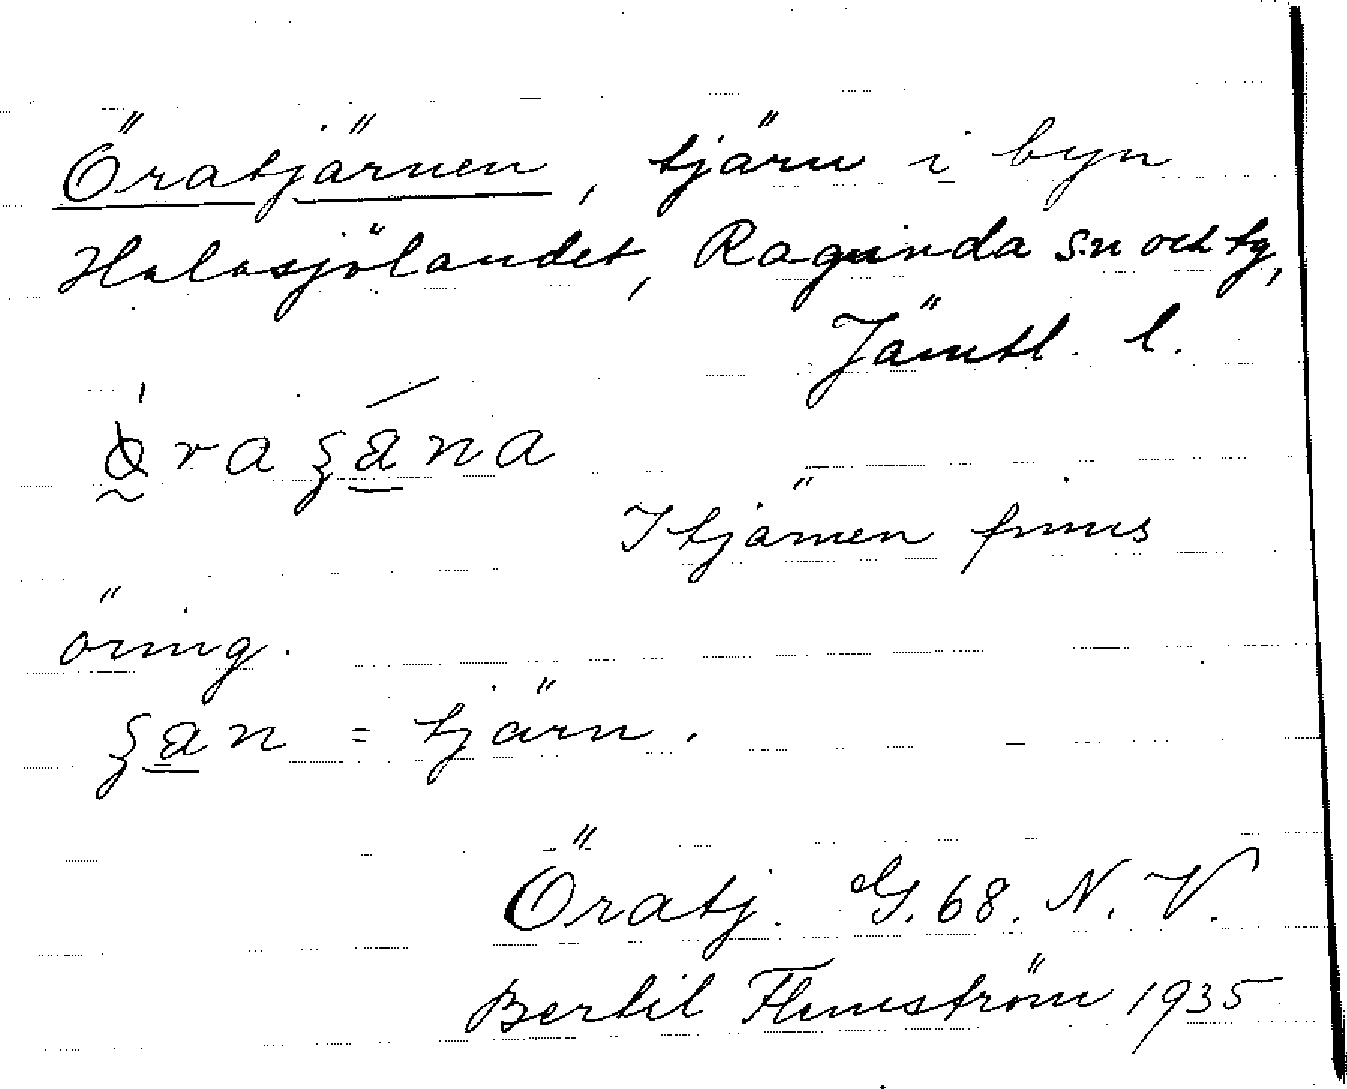 Öratjärnen, tjärn i byn
Halasjölandet, Ragunda sn och tg,
Jämtl. l.
I tjärnen finns
öring.
= tjärn.
Öratj. G. 68. N. V.
Bertil Flemström 1935